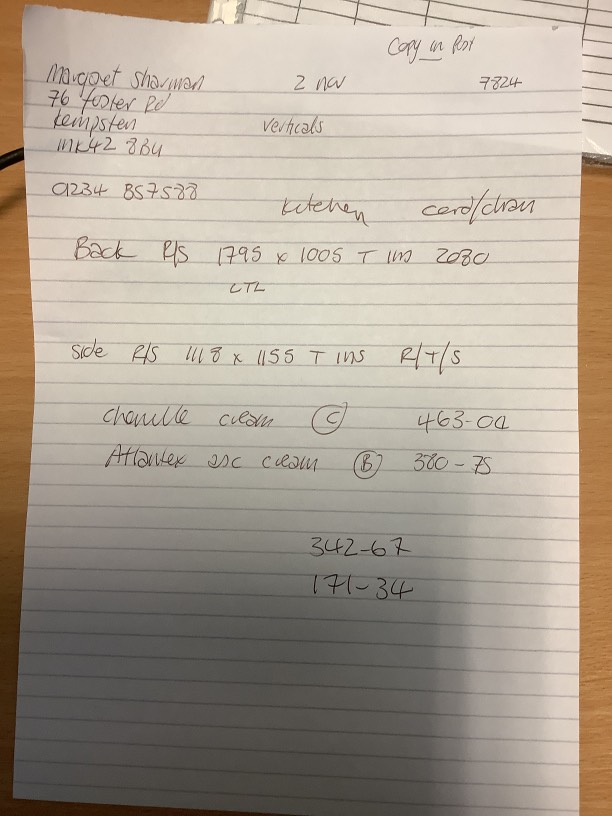 Copy in Post
Margaet Sharman 2 nov 7824
76 foster Rd
Kempsten verticals
MK42 8BU
01234 857588
kitchen cord/chain
Back R/S 1795 x 1005 T ins 2080
CTL
side R/S 1118 x 1155 T ins R/T/S
chanelle cream (C) 463-00
Atlantex asc cream (B) 380-75
342-67
171-34